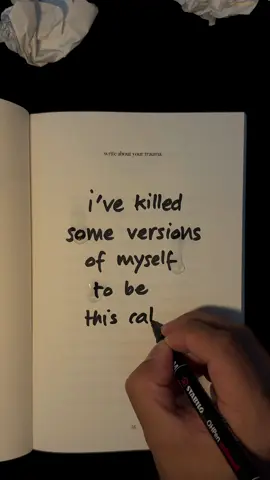 write about your trauma
i've killed
some versions
of myself
to be
this cal
STABILO
OHPen